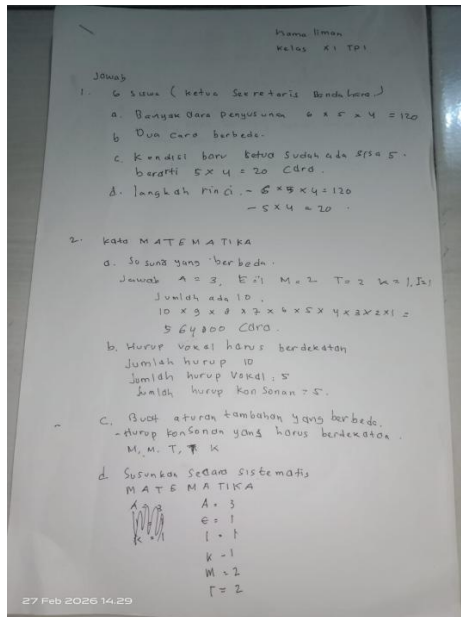 Nama Iiman
Kelas XI TP1
Jawab
1. 6 siswa ( ketua Sekretaris Bendahara )
a. Banyak cara penyusunan 6 x 5 x 4 = 120
b Dua cara berbeda.
c. Kondisi baru ketua sudah ada sisa 5.
berarti 5 x 4 = 20 cara.
d. langkah rinci. - 6 x 5 x 4 = 120
- 5 x 4 = 20 .
2. Kata MATEMATIKA
a. Susuna yang berbeda.
Jawab A = 3, E = 1 M = 2 T = 2 K = 1, I = 1
Jumlah ada 10.
10 x 9 x 8 x 7 x 6 x 5 x 4 x 3 x 2 x 1 =
564000 cara.
b. Hurup vokal harus berdekatan
Jumlah hurup 10
Jumlah hurup Vokal : 5
Jumlah hurup konsonan = 5.
C. Buat aturan tambahan yang berbeda.
- Hurup konsonan yang harus berdekatan.
M, M. T, T K
d Susunkan secara sistematis
MATEMATIKA
A = 3
E = 1
I = 1
K - 1
M = 2
T = 2
27 Feb 2026 14.29